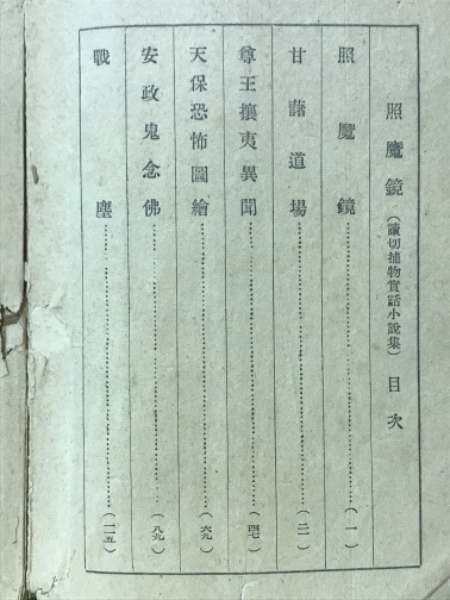 照魔鏡（讀切捕物實話小說集）目次
照魔鏡……（一）
甘諸道場……（二一）
尊王攘夷異聞……（四七）
天保恐怖圖繪……（六九）
安政鬼念佛……（八九）
戰塵……（一一五）